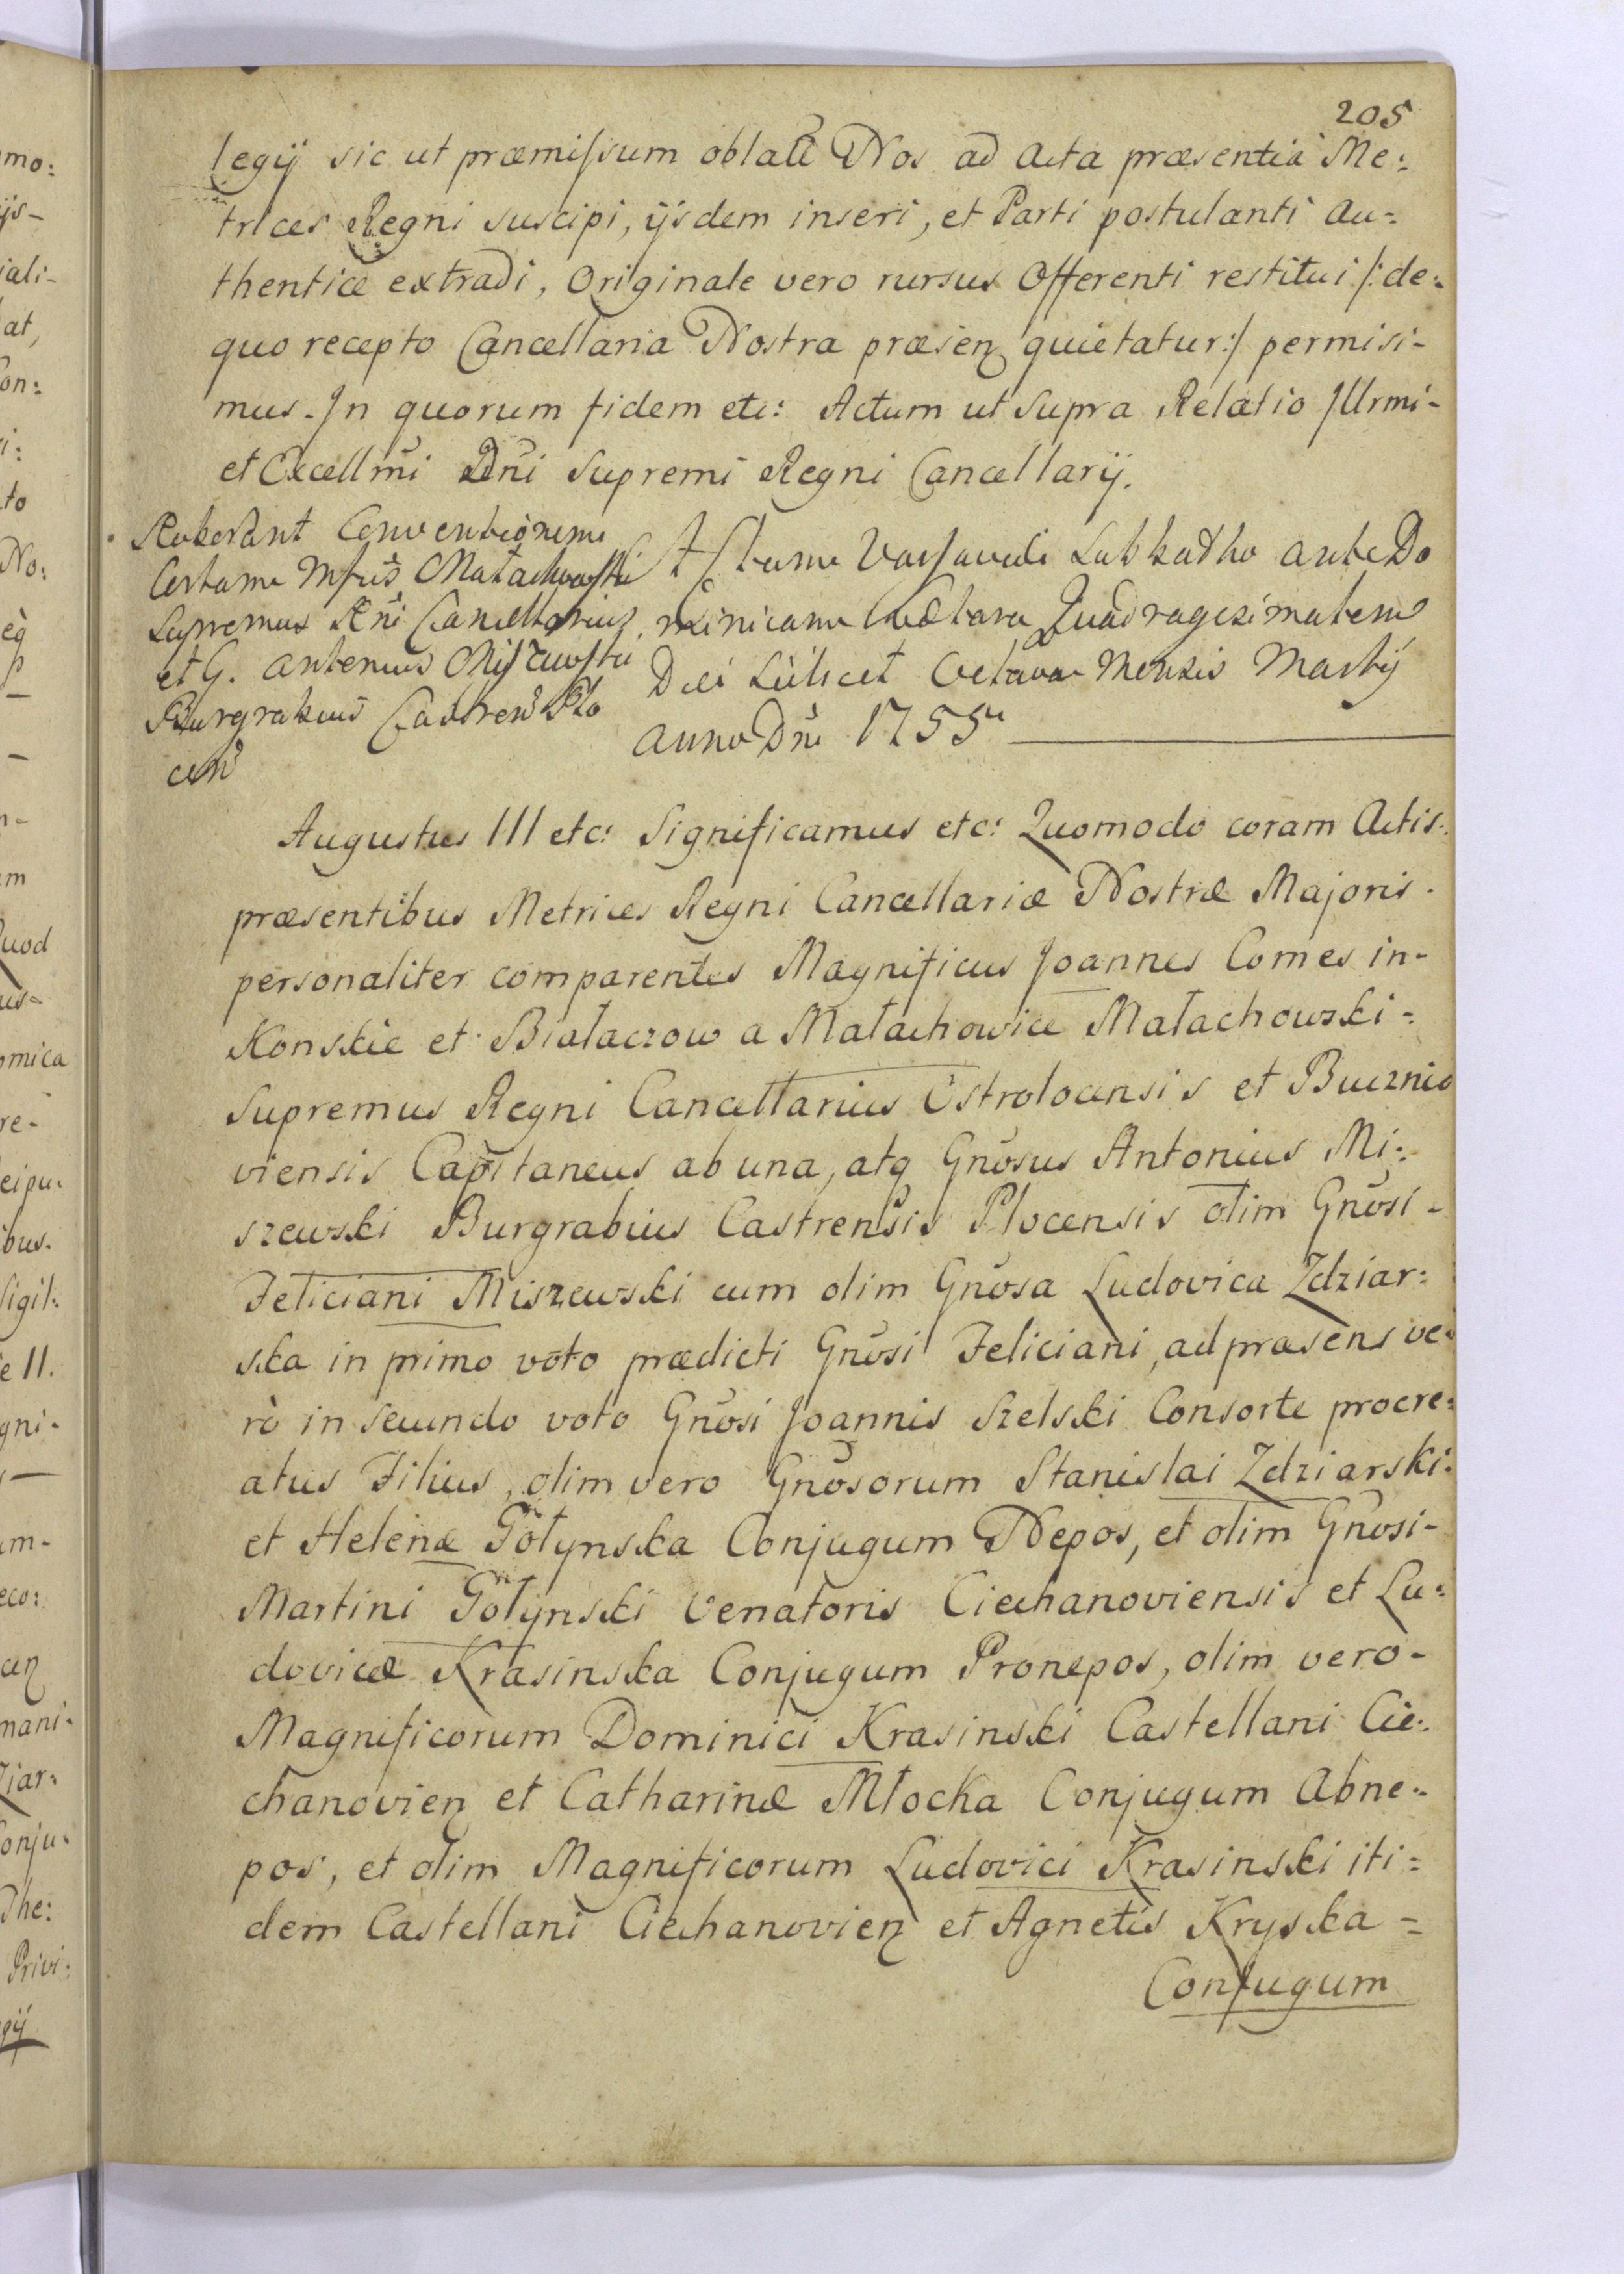 205
legij sic ut præmissum oblati Nos ad Acta præsentia Me:
trices Regni suscipi, ijsdem inseri, et Parti postulanti au=
thentice extradi, Originale vero rursus Offerenti restitui /: de=
quo recepto Cancellaria Nostra præsenz quietatur :/ permisi-
mus. In quorum fidem etc: Actum ut supra Relatio Illrmi-
et Excellmi Dni Supremi Regni Cancellarij.
Roborant Conventionem
certam Mfus Małachowski
Supremus Rni Cancellarius
et G. Antonius Miszewski
Burgrabius Castren Plo
cen
Actum Varsaviæ Sabbatho ante Do
minicam Lætare Quadragesimalem
Die scilicet Octava Mensis Martij
Anno Dni 1755
Augustus III etc: Significamus etc: Quomodo coram Actis
præsentibus Metrices Regni Cancellariæ Nostræ Majoris
personaliter comparentes Magnificus Joannes Comes in-
Konskie et Białaczow a Małachowice Małachowski=
Supremus Regni Cancellarius Ostrołocensis et Bucznio
viensis Capitaneus ab una, atq Gnosus Antonius Mi:
szewski Burgrabius Castrensis Plocensis olim Gnosi-
Feliciani Miszewski cum olim Gnosa Ludovica Zdziar:
ska in primo voto prædicti Gnosi Feliciani, ad præsens ve
rò in secundo voto Gnosi Joannis Szelski Consorte procre:
atus Filius, olim vero Gnosorum Stanislai Zdziarski:
et Helenæ Gołynska Conjugum Nepos, et olim Gnosi-
Martini Gołynski Venatoris Ciechanoviensis et Lu:
dovicæ Krasinska Conjugum Pronepos, olim vero-
Magnificorum Dominici Krasinski Castellani Cie:
chanovienz et Catharinæ Młocka Conjugum Abne:
pos, et olim Magnificorum Ludovici Krasinski iti=
dem Castellani Ciechanovienz et Agnetis Kryska=
Conjugum